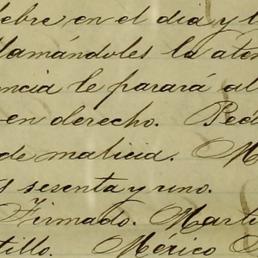 lebre en el dia y t
llamándoles la aten
ncia le parará al
en derecho. Ped
de malicia. M
s sesenta y uno.
Firmado. Marti
tillo. México